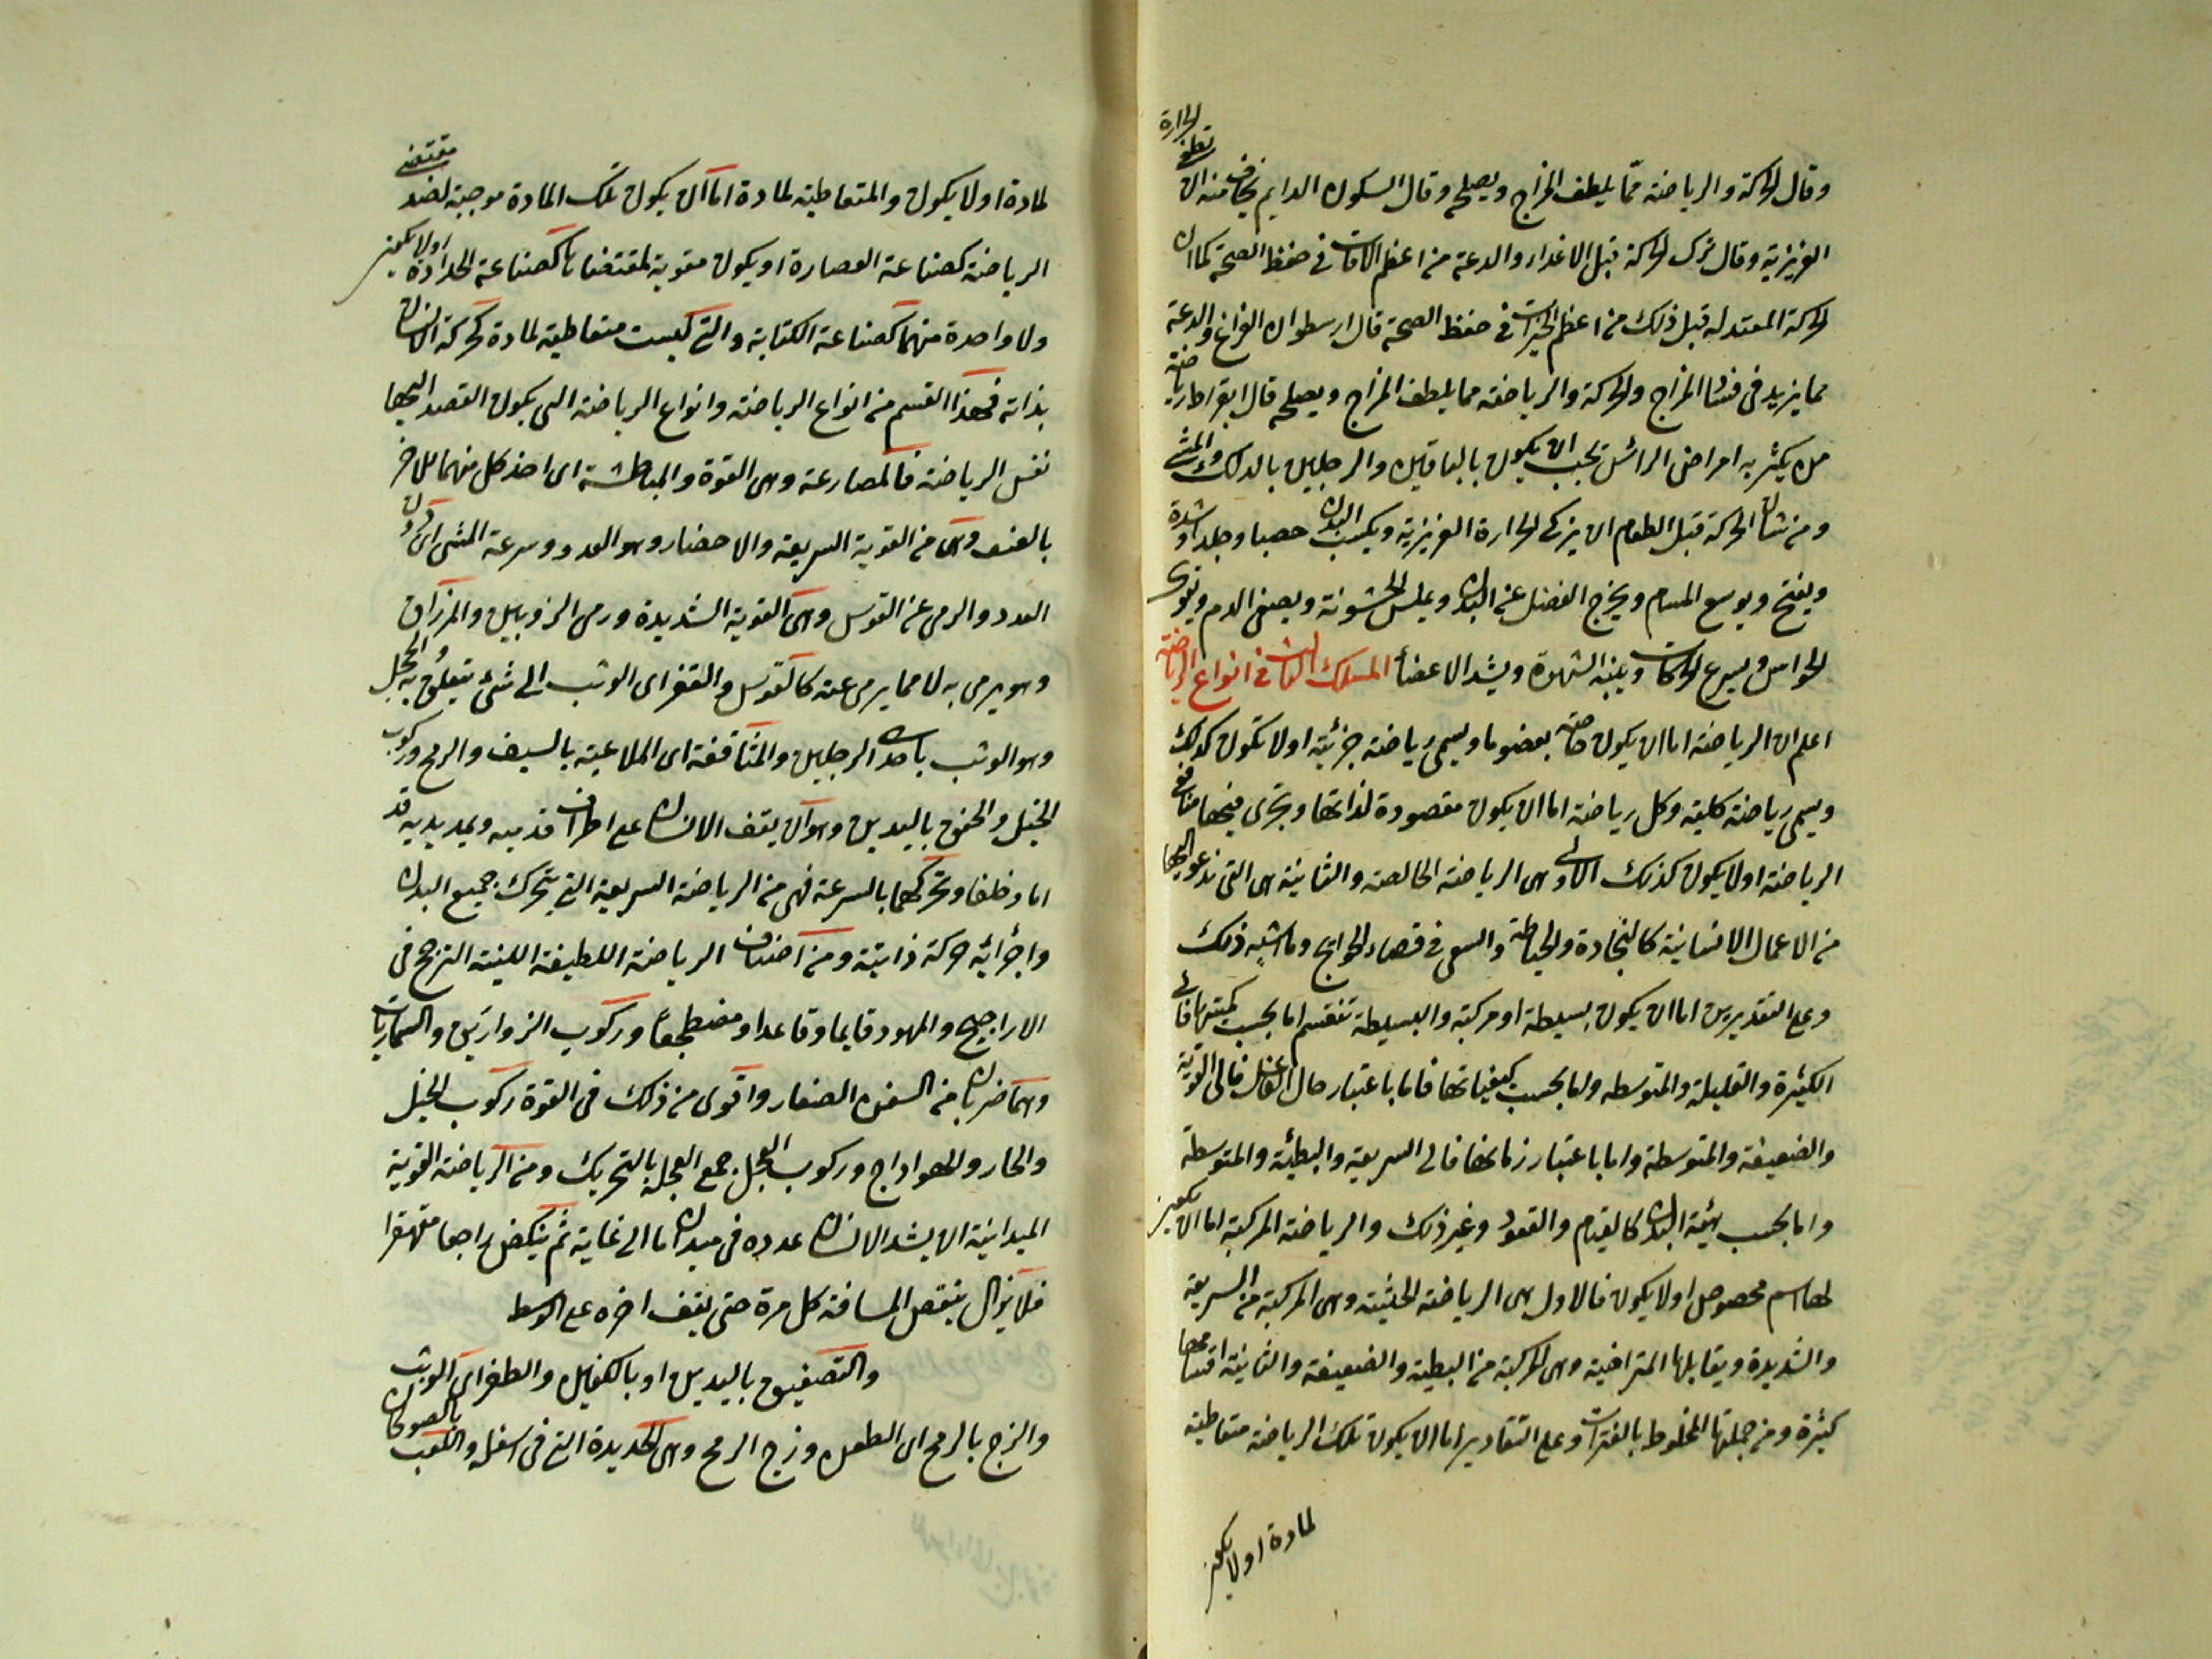 وقال الحركة والرياضة مما يلطف المزاج ويصلحه وقال السكون الدايم يخاف منه ان تطفى الحرارة
الغريزية وقال ترك الحركة قبل الاغذاء والدعة من اعظم الآفات فى حفظ الصحة كما ان
الحركة المعتدلة قبل ذلك من اعظم الخيرات فى حفظ الصحة قال ارسطو ان الفراغ والدعة
مما يزيد فى فساد المزاج والحركة والرياضة مما يلطف المزاج ويصلحه قال ابقراط رياضة
من يكثر به امراض الراس يجب ان يكون بالساقين والرجلين بالدلك والمشى
ومن شان الحركة قبل الطعام ان يزكى الحرارة الغريزية ويكسب البدن وجلدا وشدة
ويفتح ويوسع المسام ويخرج الفضل عن البدن ويملس الخشونة ويصفى الدم ويقوى
الحواس ويسرع الحركات وينبه الشهوة ويشد الاعضاء المسلك الثالث فى انواع الرياضة
اعلم ان الرياضة اما ان يكون خاصة بعضو ما ويسمى رياضة جزئية او لا تكون كذلك
ويسمى رياضة كلية وكل رياضة اما ان يكون مقصودة لذاتها ويجرى فيها منافع
الرياضة او لا يكون كذلك الاولى هى الرياضة الخالصة والثانية هى التى ندعو اليها
من الاعمال الانسانية كالنجادة والخياطة والسعى فى قضاء الحوايج وما اشبه ذلك
وعلى التقديرين اما ان يكون بسيطة او مركبة والبسيطة تنقسم اما بحسب كميتها فالى
الكثيرة والقليلة والمتوسطة واما بحسب كيفياتها فاما باعتبار حال الفاعل فالى القوية
والضعيفة والمتوسطة واما باعتبار زمانها فالى السريعة والبطئية والمتوسطة
واما بحسب هيئة البدن كالقيام والقعود وغير ذلك والرياضة المركبة اما ان يكون
لها اسم مخصوص او لا يكون فالاول هى الرياضة الحثيثة وهى المركبة من السريعة
والشديدة ويقابلها المتراخية وهى المركبة من البطية والضعيفة والثانية اقسامها
كثيرة ومن جملتها المخلوط بالفترات وعلى التقادير اما ان يكون تلك الرياضة متعاطية
لمادة او لا يكون
لمادة او لا يكون والمتعاطية لمادة اما ان يكون تلك المادة موجبة لضد مقتضى
الرياضة كصناعة القصارة او يكون مقوية لمقتضاها كصناعة الحدادة او لا يكون
ولا واحدة منهما كصناعة الكتابة والتى ليست متعاطية لمادة كحركة الانسان
بذاته فهذا القسم من انواع الرياضة وانواع الرياضة التى يكون القصد اليها
نفس الرياضة فالمصارعة وهى القوة والمباطشة اى اخذ كل منهما للاخر
بالعنف وهى من القوية السريعة والاحضار وهو العدو وسرعة المشى اى دون
العدو والرمى عن القوس وهى القوية الشديدة ورمى الزوبين والمزراق
وهو يرمى به لا مما يرمى عنه كالقوس والقفز اى الوثب الى شئ يتعلق به والحجل
وهو الوثب باحدى الرجلين والمثاقفة اى الملاعبة بالسيف والرمح وركوب
الخيل والخفق باليدين وهو ان يقف الانسان على اطراف قدميه ويمد يديه قد
اما وخلفا وتحركهما بالسرعة فهى من الرياضة السريعة التى يتحرك جميع البدن
واجزائه حركة ذاتية ومن اصناف الرياضة اللطيفة اللينة الترجح فى
الاراجيح والمهود قايما وقاعدا ومضطجعا وركوب الزواريق والسماريات
وهما ضربان من السفن الصغار واقوى من ذلك فى القوة ركوب الخيل
والحار والهواداج وركوب العجل جمع العجلة بالتحريك ومن الرياضة القوية
الميدانية ان يشد الانسان عدوه فى ميدان ما الى غاية ثم ينكص راجعا متقهقرا
فلا يزال ينقص المسافة كل مرة حتى يقف اخره على الوسط
والتصفيق باليدين او بالكفين والطفر اى الوثب
والزج بالرمح اى الطعن وزج الرمح وهى الحديدة التى فى اسفله واللعب بالصولجان